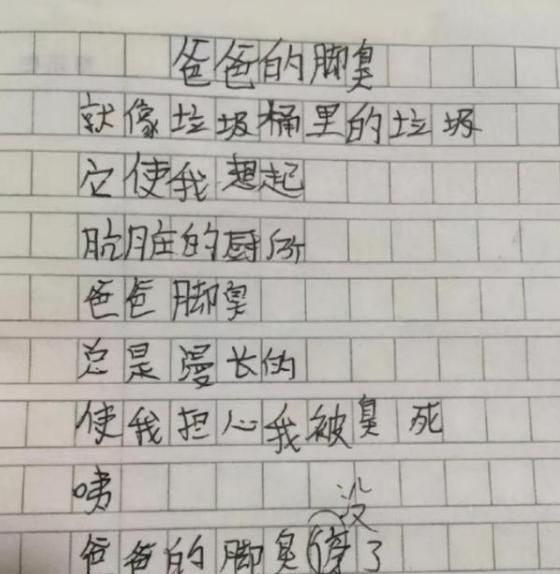 爸爸的脚臭
就像垃圾桶里的垃圾
它使我想起
肮脏的厨所
爸爸脚臭
总是漫长的
使我担心我被臭死
咦
没
爸爸的脚臭停了